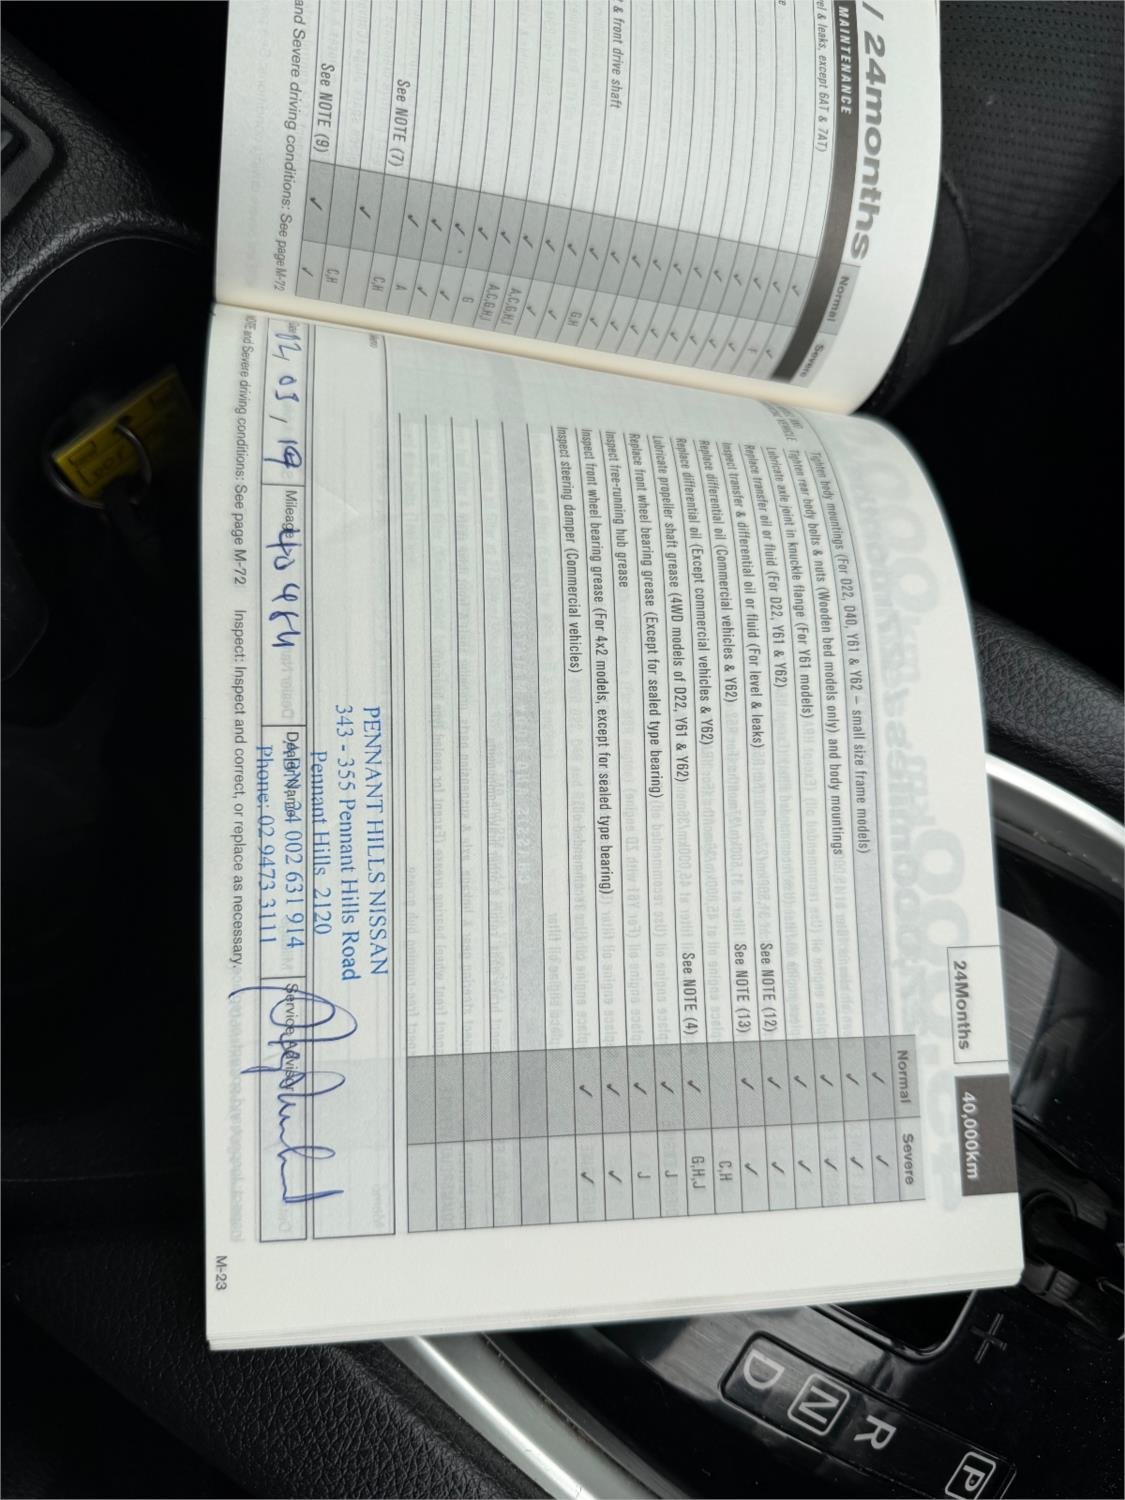 / 24months
MAINTENANCE
Normal
Severe
el & leaks, except 6AT & 7AT)
& front drive shaft
G,H
A,C,G,H,J
A,C,G,H,J
G
See NOTE (7)
A
C,H
See NOTE (9)
C,H
and Severe driving conditions: See page M-72
24Months
40,000km
Normal
Severe
Tighten body mountings (For D22, D40, Y61 & Y62 – small size frame models)
Tighten rear body bolts & nuts (Wooden bed models only) and body mountings
Lubricate axle joint in knuckle flange (For Y61 models)
Replace transfer oil or fluid (For D22, Y61 & Y62) See NOTE (12)
Inspect transfer & differential oil or fluid (For level & leaks) See NOTE (13)
Replace differential oil (Commercial vehicles & Y62) C,H
Replace differential oil (Except commercial vehicles & Y62) See NOTE (4) G,H,J
Lubricate propeller shaft grease (4WD models of D22, Y61 & Y62) J
Replace front wheel bearing grease (Except for sealed type bearing) J
Inspect free-running hub grease
Inspect front wheel bearing grease (For 4x2 models, except for sealed type bearing)
Inspect steering damper (Commercial vehicles)
PENNANT HILLS NISSAN
343 - 355 Pennant Hills Road
Pennant Hills 2120
ABN 24 002 631 914
Phone: 02 9473 3111
12, 03, 19
Mileage 40484
Dealer Name
Service Advisor
NOTE and Severe driving conditions: See page M-72 Inspect: Inspect and correct, or replace as necessary.
M-23
P
R
N
D
+